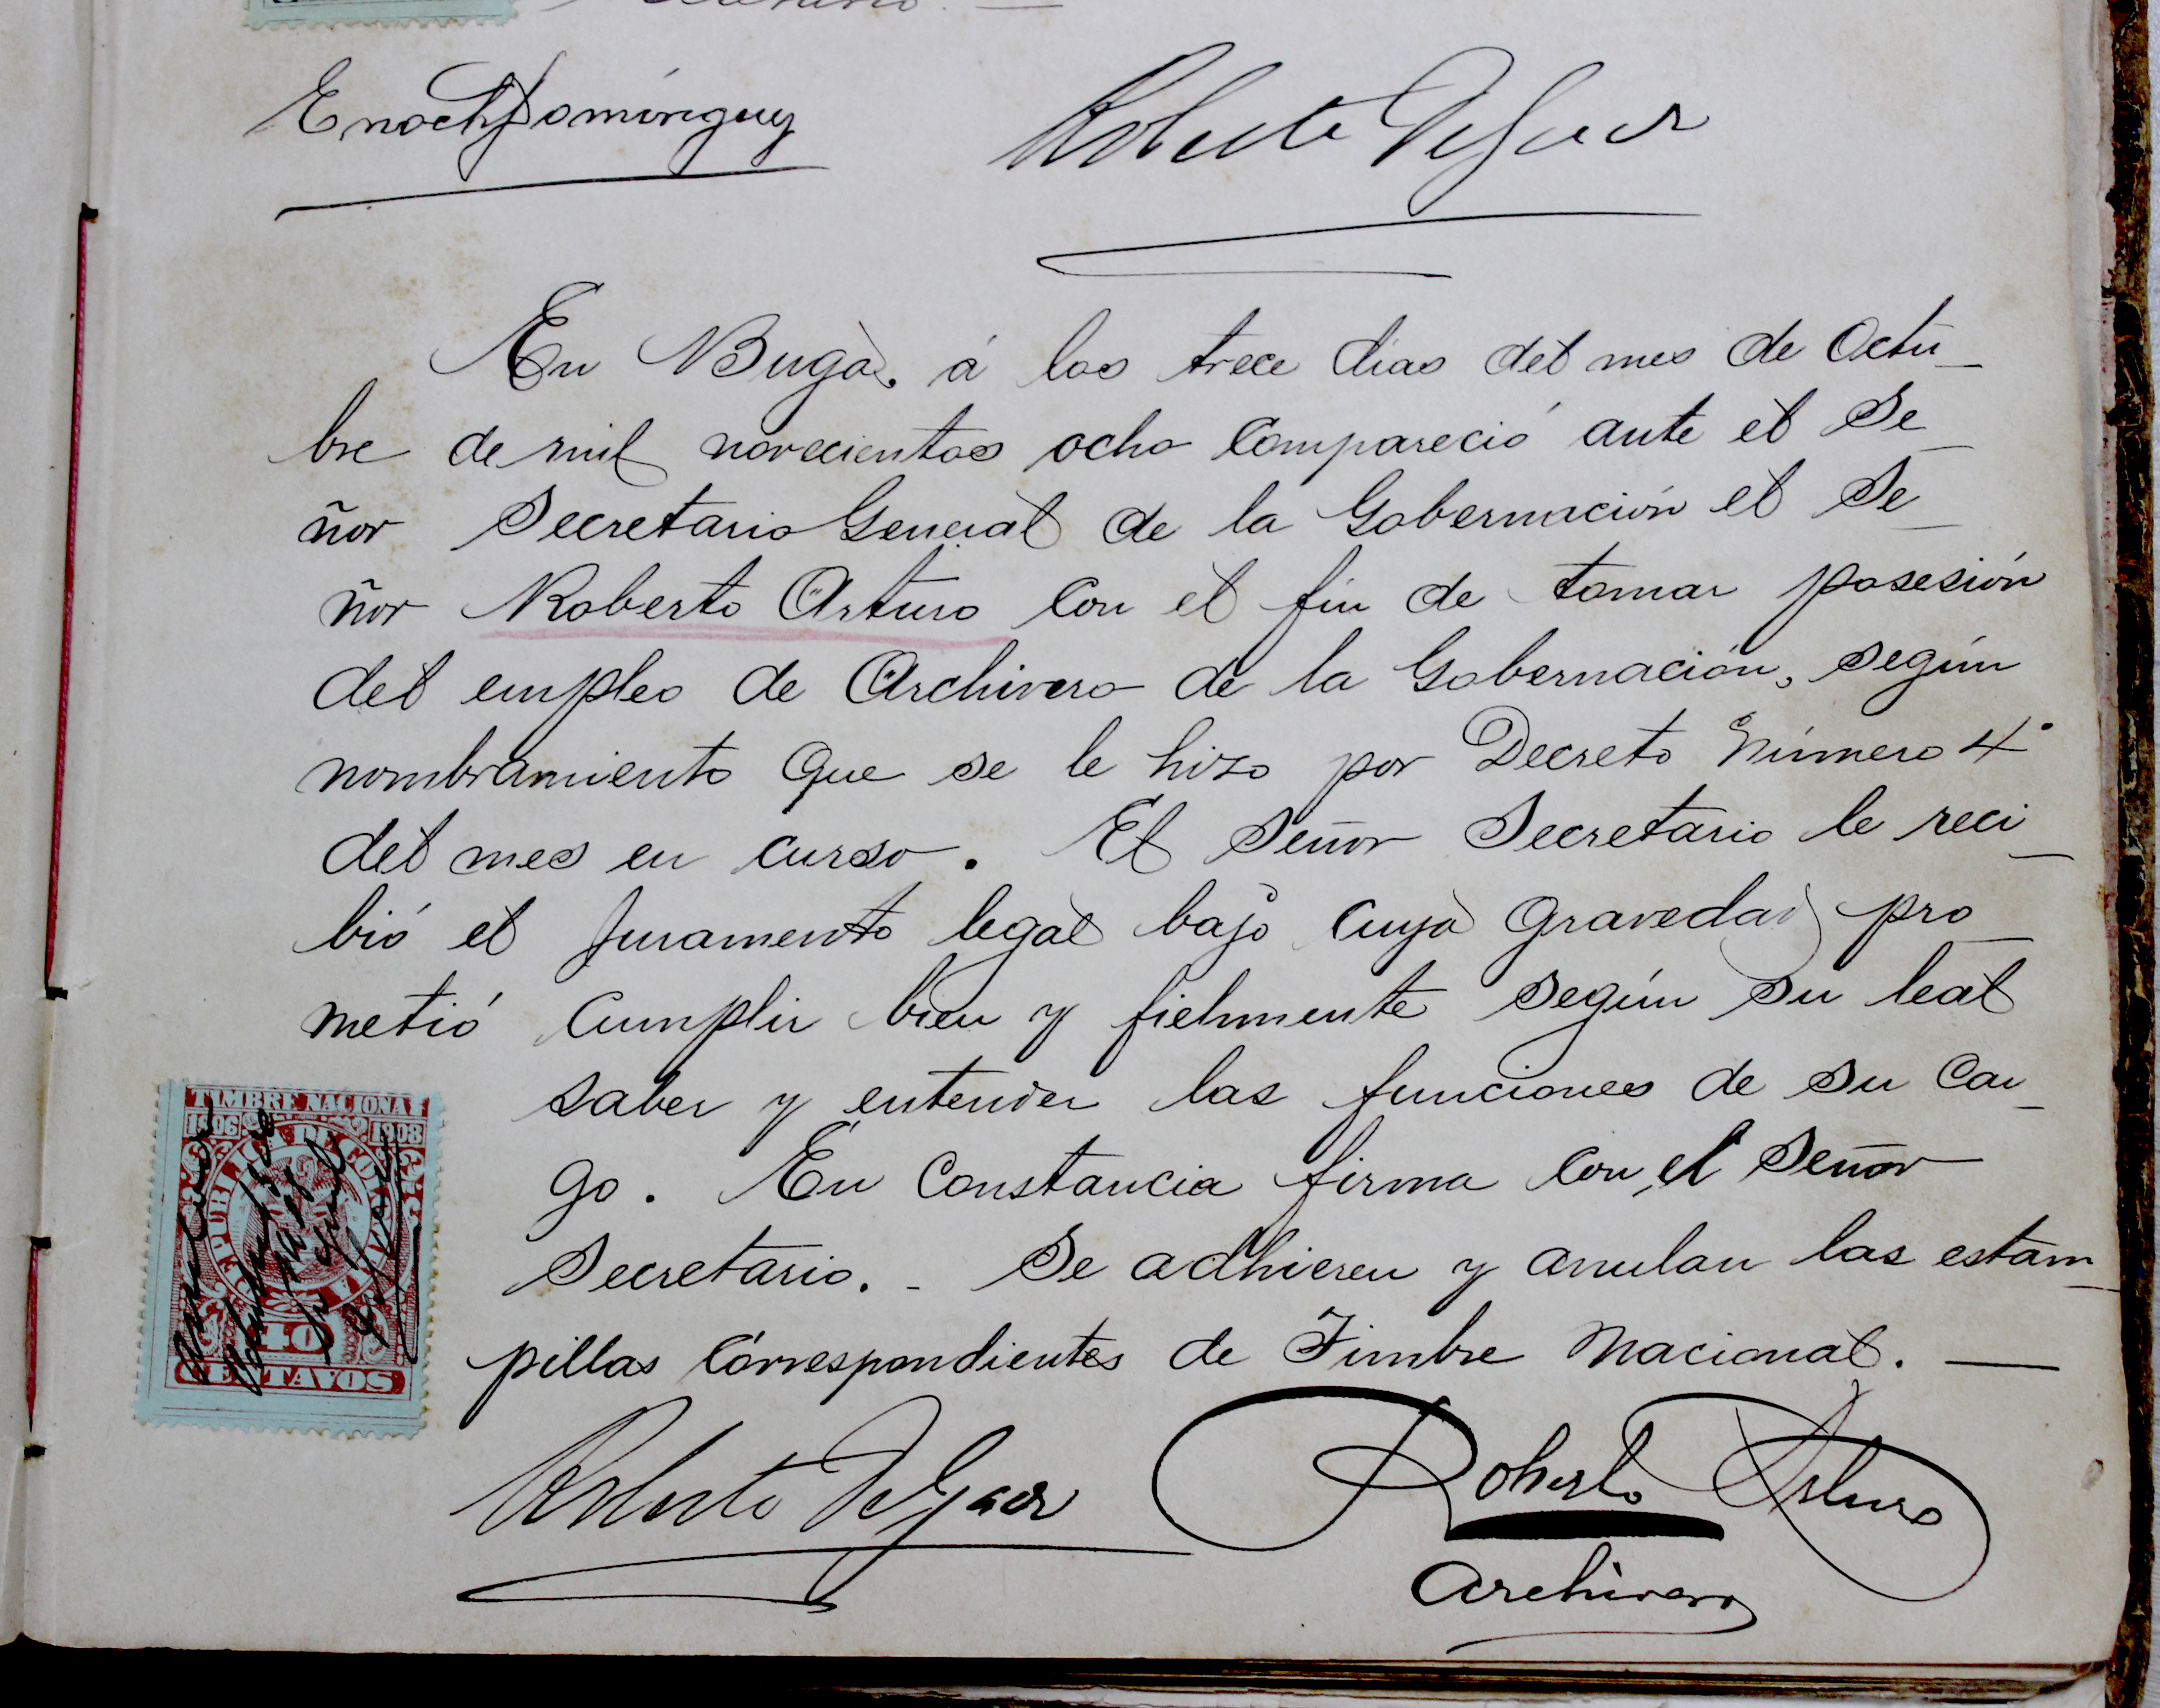 Enoch Domínguez
Roberto
En Buga, á los trece dias del mes de Octu-
bre de mil novecientos ocho compareció ante el Se-
ñor Secretario General de la Gobernación el Se-
ñor Roberto Arturo con el fin de tomar posesión
del empleo de Archivero de la Gobernación, según
nombramiento que se le hizo por Decreto Número 4°
del mes en curso. El Señor Secretario le reci-
bió el juramento legal bajo cuya gravedad pro-
metió cumplir bien y fielmente según su leal
saber y entender las funciones de su car-
go. En constancia firma con el Señor
Secretario. - Se adhieren y anulan las estam-
pillas correspondientes de Timbre Nacional. —
TIMBRE NACIONAL
1906 1908
REPUBLICA DE COLOMBIA
10
CENTAVOS
Roberto
Roberto Arturo
Archivero